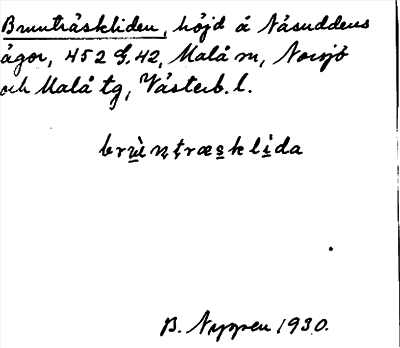 Brunträskliden, höjd å Näsuddens
ägor, 452 G. 42, Malå sn, Norsjö
och Malå tg, Västerb. l.
brùntræsklida
B. Nyppen 1930.